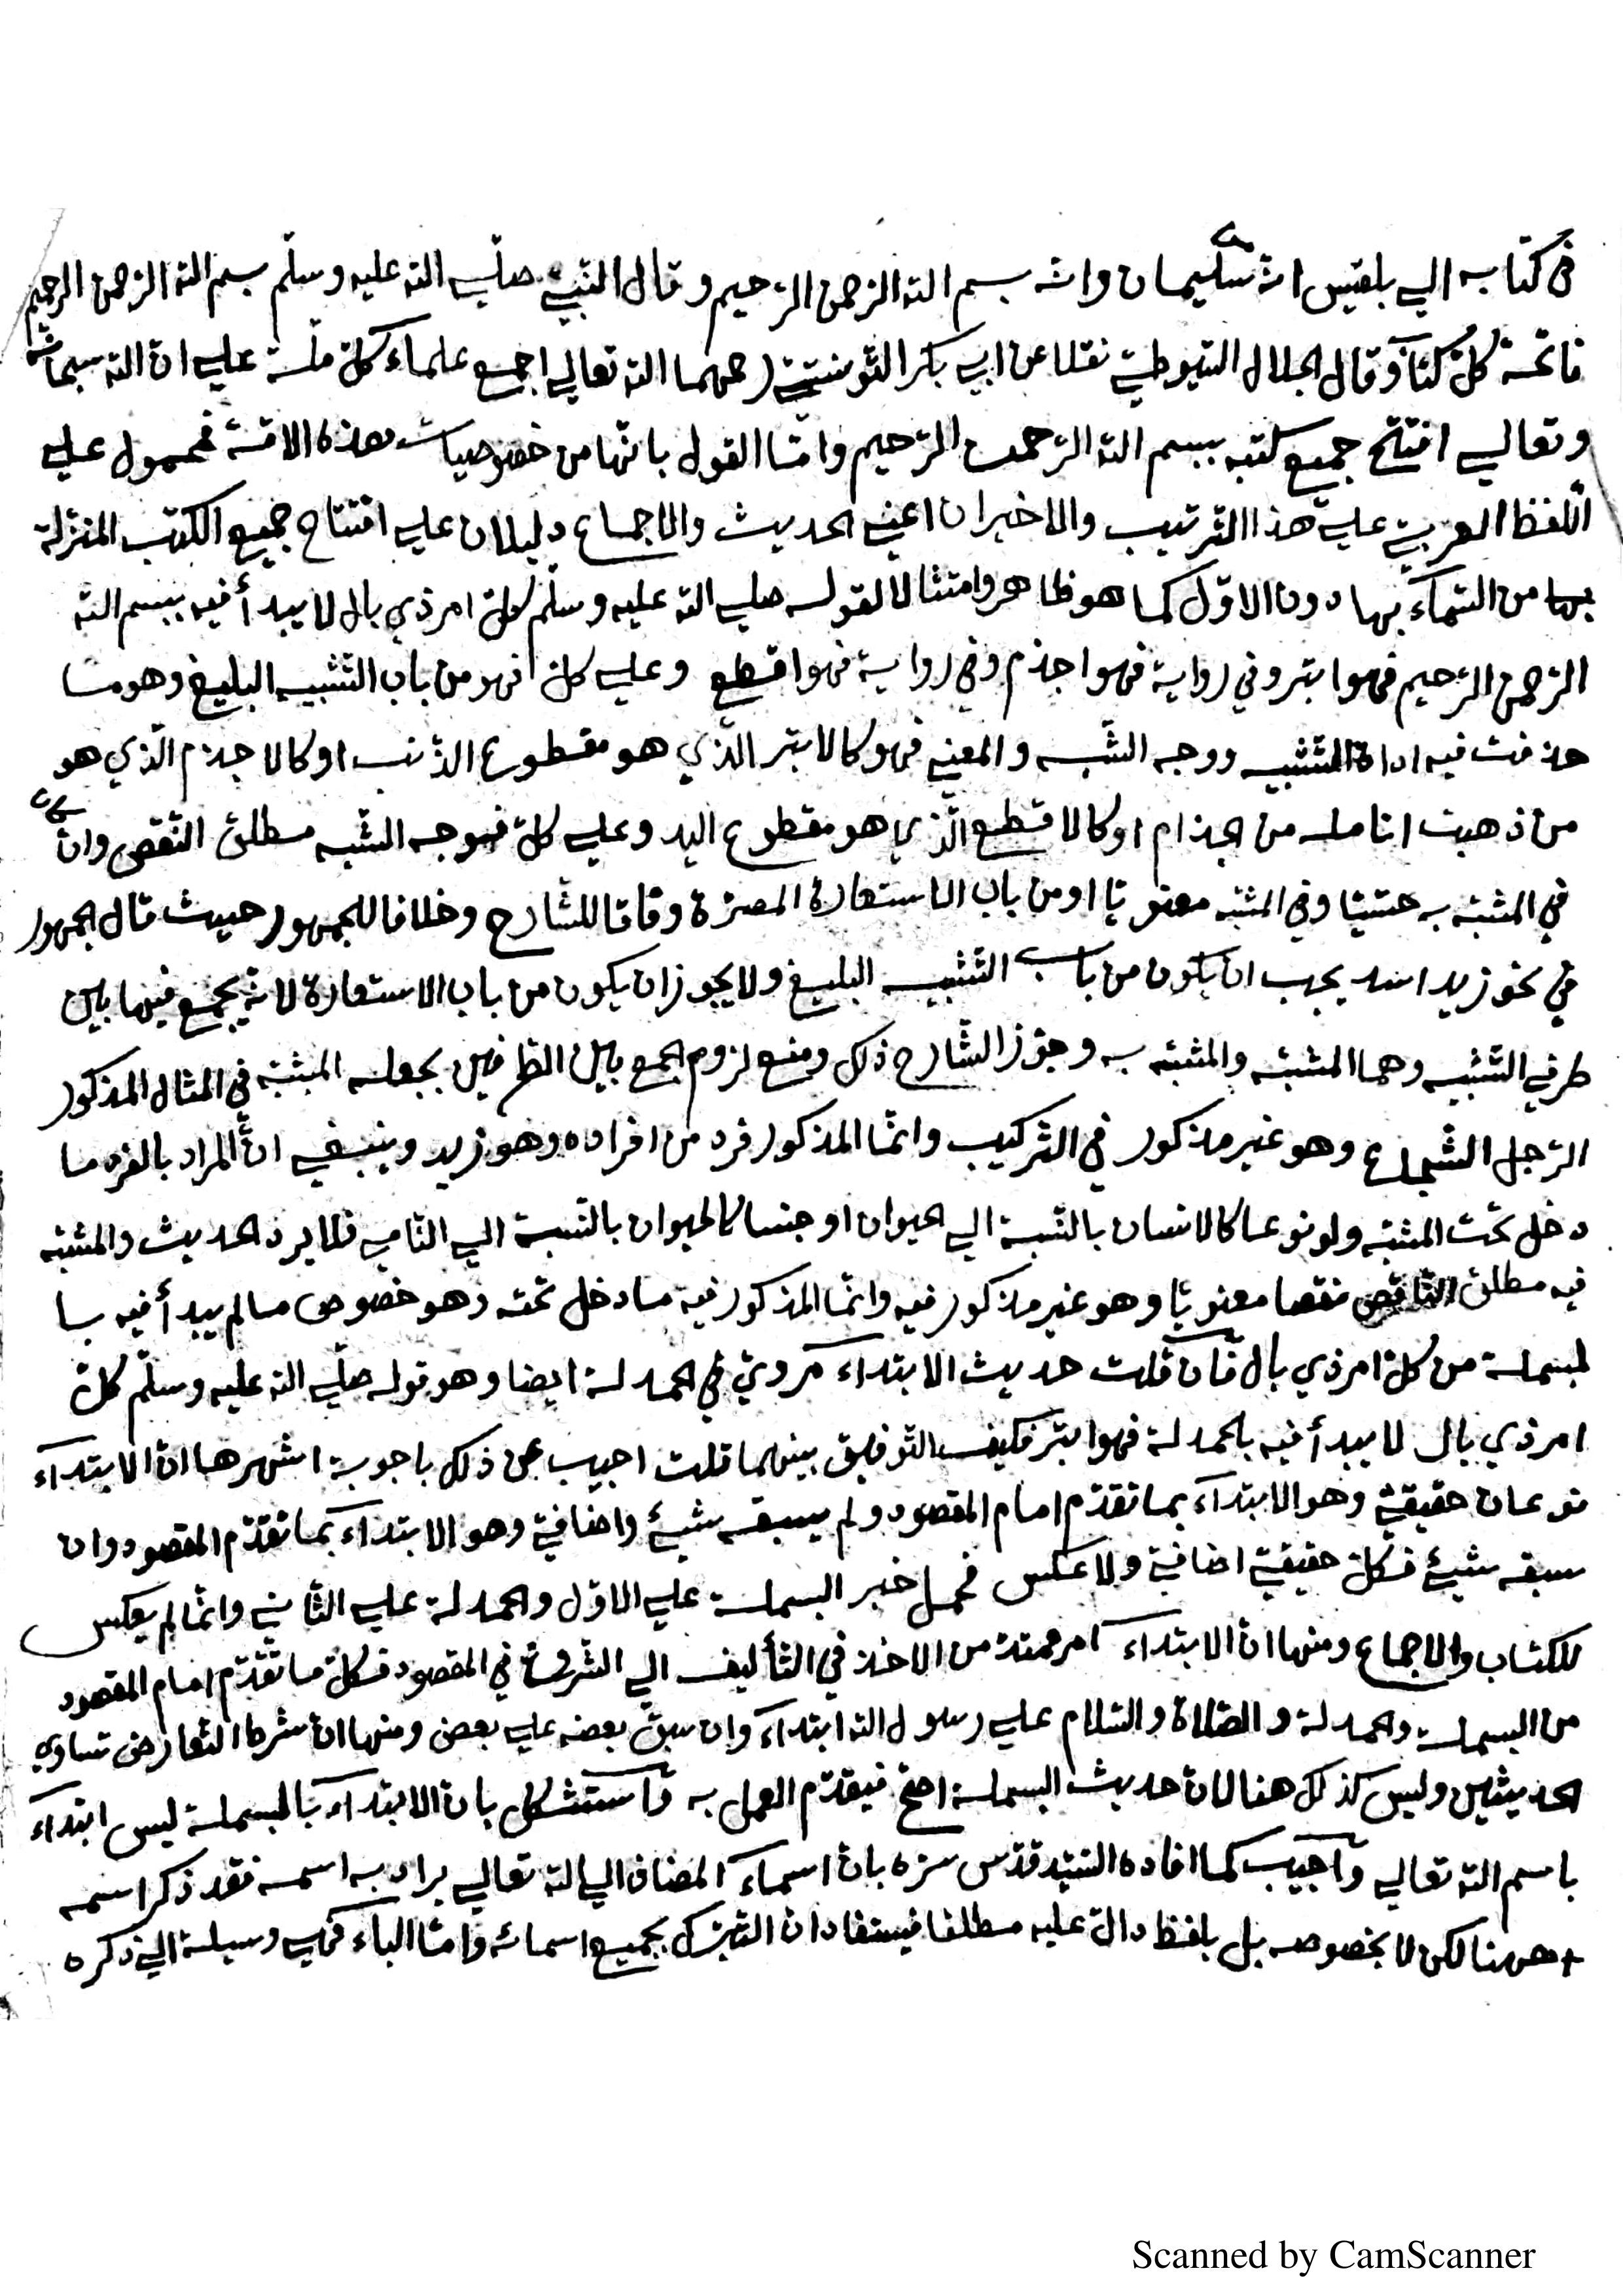 في كتابه الي بلقيس انه من سليمان وانه بسم الله الرحمن الرحيم وقال النبيّ صلّي الله عليه وسلّم بسم الله الرحمن الرحيم
فاتحة كلّ كتاب وقال الجلال السّيوطيّ نقلا عن ابي بكر التّونسيّ رحمهما الله تعالي اجمع علماء كلّ ملّة علي انّ الله سبحانه
وتعالي افتتح جميع كتبه ببسم الله الرّحمن الرّحيم وامّا القول بانّها من خصوصيات هذه الامّة فمحمول علي
اللّفظ العربيّ علي هذا التّرتيب والاخيران اعني الحديث والاجماع دليلان علي افتتاح جميع الكتب المنزلة
بها من السّمآء بها دون الاوّل كما هو ظاهر وامتثالا لقوله صلي الله عليه وسلّم كلّ امر ذي بال لا يبدأ فيه ببسم الله
الرّحمن الرّحيم فهو ابتر وفي رواية فهو اجذم وفي رواية فهو اقطع وعلي كلّ فهو من باب التّشبيه البليغ وهو ما
حذفت فيه اداة التّشبيه ووجه الشّبه والمعني فهو كالابتر الّذي هو مقطوع الذّنب او كالاجذم الّذي هو
من ذهبت انامله من الجذام او كالاقطع الّذي هو مقطوع اليد وعلي كلّ فوجه الشّبه مطلق النّقص وان كان
في المشبّه به حسّيّا وفي المشبّه معنويّا او من باب الاستعارة المصرّحة وفاقا للشّارح وخلافا للجمهور حيث قال الجمهور
في نحو زيد اسد يجب ان يكون من باب التّشبيه البليغ ولا يجوز ان يكون من باب الاستعارة لانّه يجمع فيها بين
طرفي التّشبيه وهما المشبّه والمشبّه به وجوّز الشّارح ذلك ومنع لزوم الجمع بين الطّرفين بجعله المشبّه في المثال المذكور
الرّجل الشّجاع وهو غير مذكور في التّركيب وانّما المذكور فرد من افراده وهو زيد وينبغي انّ المراد بالفرد ما
دخل تحت المشبّه ولو نوعا كالانسان بالنّسبة الي الحيوان او جنسا كالحيوان بالنّسبة الي النّامي فلا يرد الحديث والمشبّه
فيه مطلق النّاقص نقصا معنويّا وهو غير مذكور فيه وانّما المذكور فيه ما دخل تحته وهو خصوص ما لم يبدأ فيه با
لبسملة من كلّ امر ذي بال فان قلت حديث الابتداء مرويّ في الحمدلة ايضا وهو قوله صلّي الله عليه وسلّم كلّ
امر ذي بال لا يبدأ فيه بالحمدلة فهو ابتر فكيف التّوفيق بينهما قلت اجيب عن ذلك باجوبة اشهرها انّ الابتدآء
نوعان حقيقيّ وهو الابتدآء بما تقدّم امام المقصود ولم يسبقه شيئ واضافيّ وهو الابتدآء بما تقدّم المقصود وان
سبقه شيئ فكلّ حقيقيّ اضافيّ ولا عكس فحمل خبر البسملة علي الاوّل والحمدلة علي الثّاني وانّما لم يعكس
للكتاب والاجماع ومنها انّ الابتداء امر ممتدّ من الاخذ في التّأليف الي الشّروع في المقصود فكلّ ما تقدّم امام المقصود
من البسملة والحمدلة والصّلاة والسّلام علي رسول الله ابتدآء وان سبق بعضه علي بعض ومنها انّ شرط التّعارض تساوي
الحديثين وليس كذلك هنا لانّ حديث البسملة اصحّ فيقدّم العمل به واستشكل بانّ الابتدآء بالبسملة ليس ابتداء
باسم الله تعالي واجيب كما افاده السّيّد قدّس سرّه بانّ اسماء المضاف الي الله تعالي يراد به اسمه فقد ذكر اسمه
ههنا لكن لا بخصوصه بل بلفظ دالّ عليه مطلقا فيستفاد انّ التّبرّك بجميع اسمائه وامّا الباء فهي وسيلة الي ذكره
Scanned by CamScanner